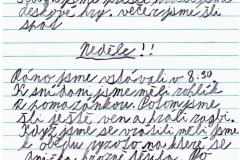 deskové hry, večer jsme šli
spát
Neděle!!
Ráno jsme vstávali v 8:30.
K snídani jsme měli rohlík
s pomazánkou. Potom jsme
šli ještě ven a hráli
Když jsme se vrátili měli jsme
k obědu ryzoto na které se